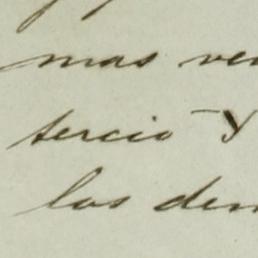 mas ven
tercio y
las dem